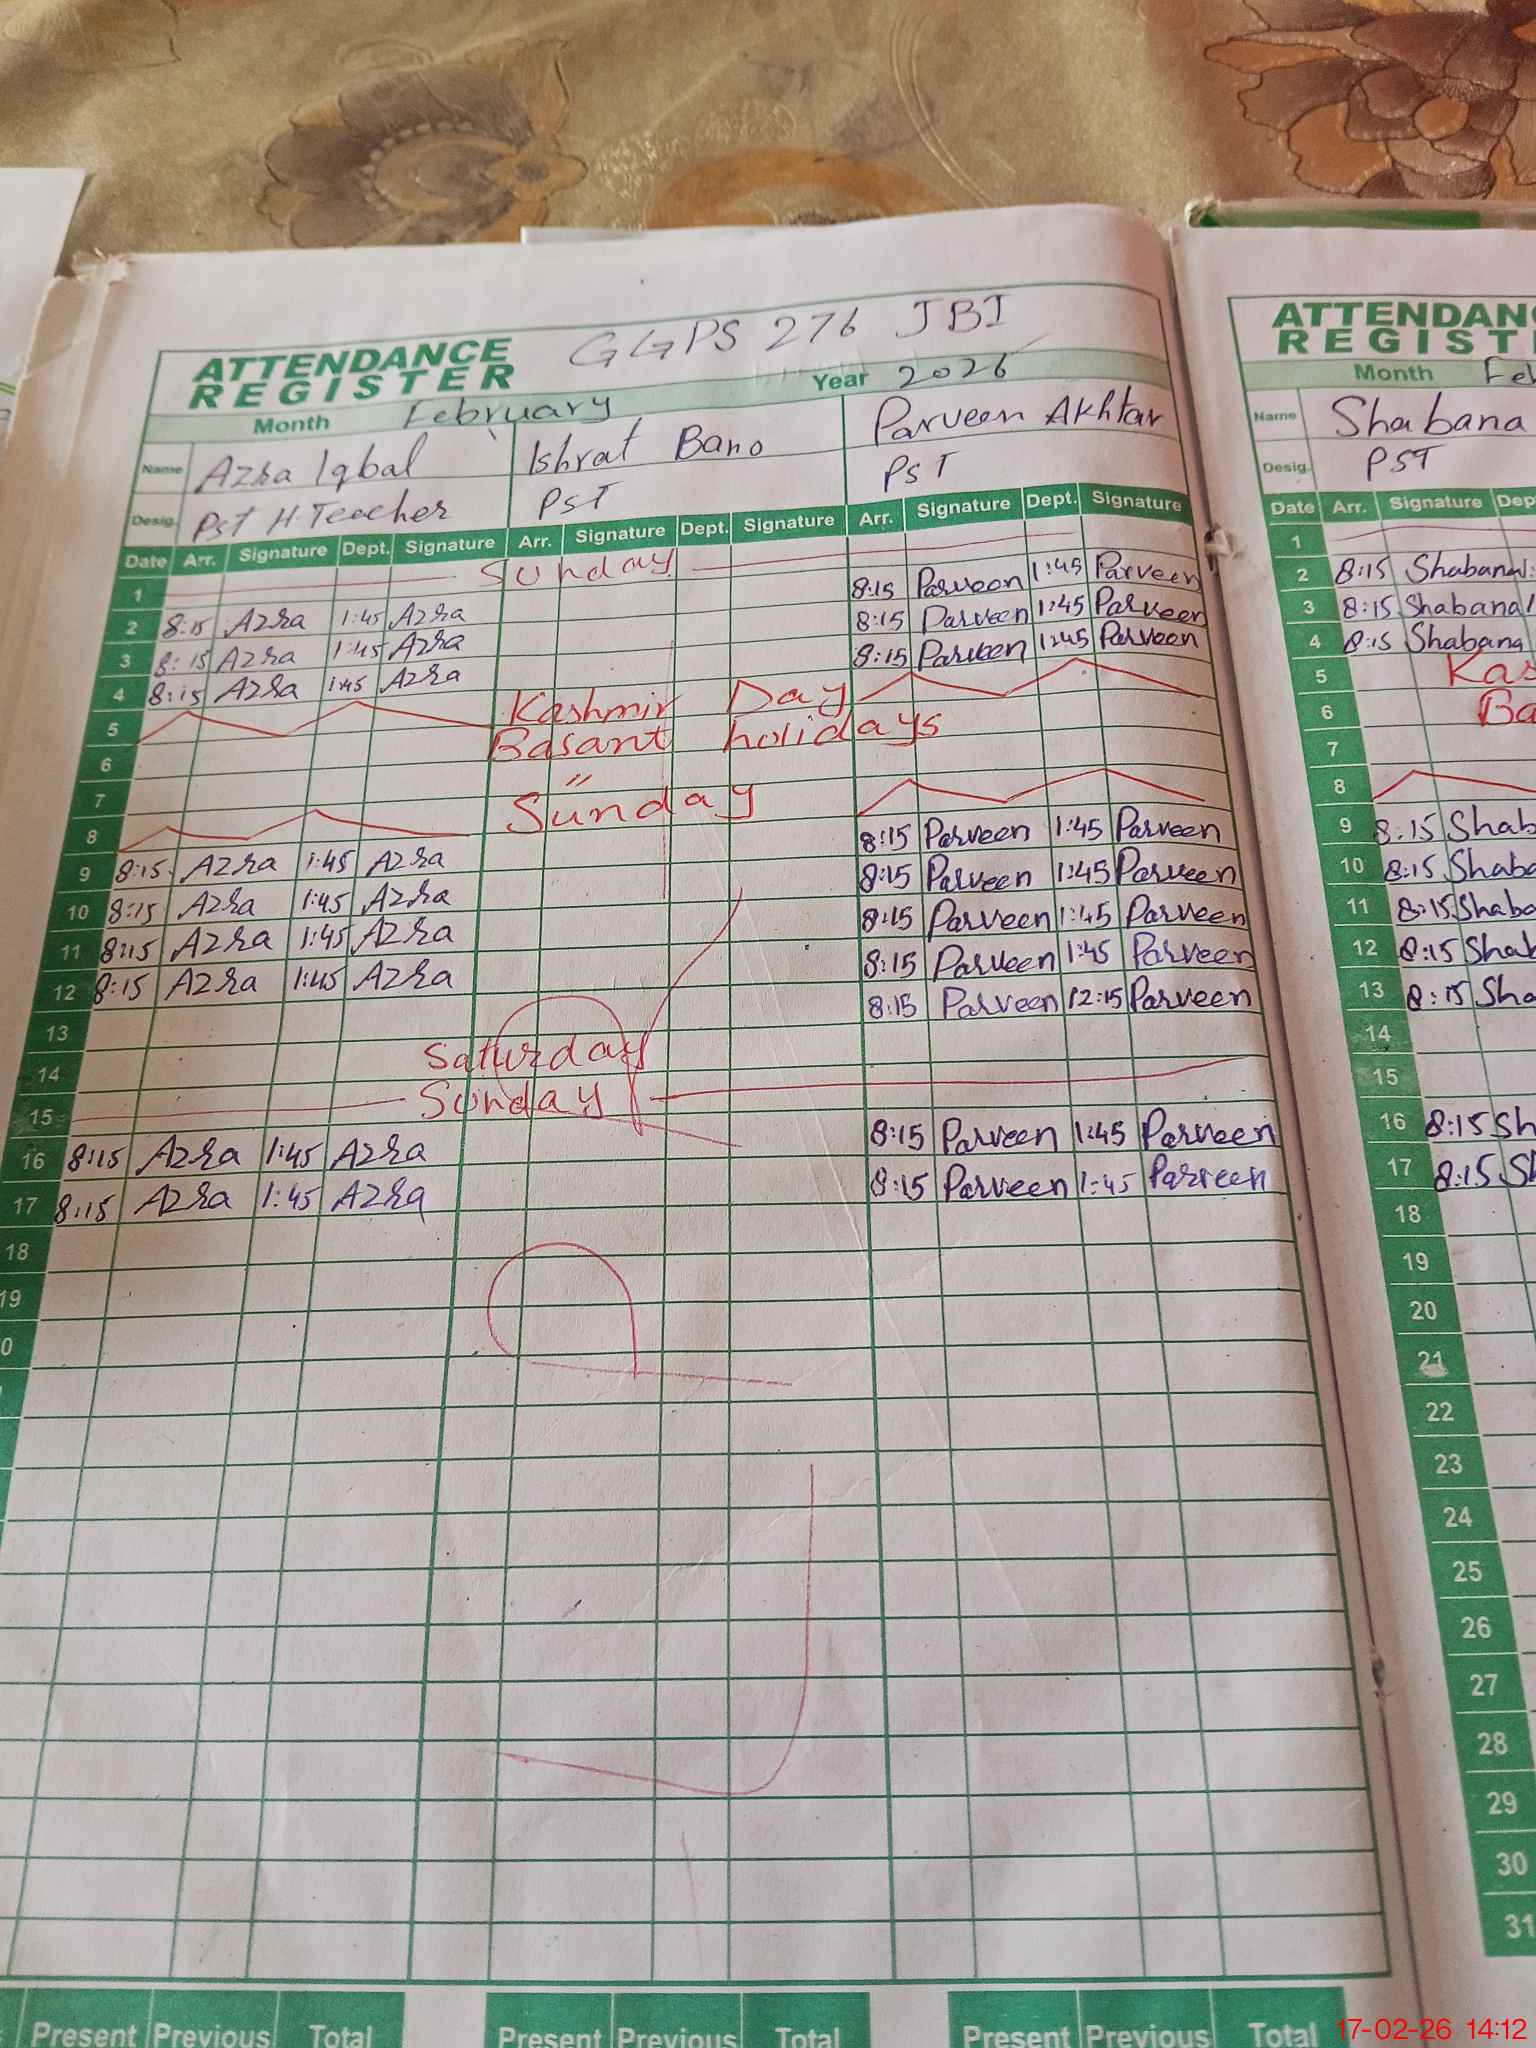 GGPS 276 JBI
ATTENDANCE REGISTER
Month February Year 2026
Name Azra Iqbal Ishrat Bano Parveen Akhtar
Desig. PST H-Teacher PST PST
Date Arr. Signature Dept. Signature Arr. Signature Dept. Signature Arr. Signature Dept. Signature
1 Sunday
2 8:15 Azra 1:45 Azra 8:15 Parveen 1:45 Parveen
3 8:15 Azra 1:45 Azra 8:15 Parveen 1:45 Parveen
4 8:15 Azra 1:45 Azra 8:15 Parveen 1:45 Parveen
5 Kashmir Day
6 Basant holidays
7 "
8 Sunday
9 8:15 Azra 1:45 Azra 8:15 Parveen 1:45 Parveen
10 8:15 Azra 1:45 Azra 8:15 Parveen 1:45 Parveen
11 8:15 Azra 1:45 Azra 8:15 Parveen 1:45 Parveen
12 8:15 Azra 1:45 Azra 8:15 Parveen 1:45 Parveen
13 8:15 Parveen 12:15 Parveen
14 Saturday
15 Sunday
16 8:15 Azra 1:45 Azra 8:15 Parveen 1:45 Parveen
17 8:15 Azra 1:45 Azra 8:15 Parveen 1:45 Parveen
18
19
0
Present Previous Total Present Previous Total Present Previous Total
ATTENDAN
REGIST
Month Feb
Name Shabana
Desig. PST
Date Arr. Signature Dep
1
2 8:15 Shabana
3 8:15 Shabana
4 8:15 Shabana
5 Kas
6 Ba
7
8
9 8:15 Shab
10 8:15 Shaba
11 8:15 Shaba
12 8:15 Shab
13 8:15 Sha
14
15
16 8:15 Sh
17 8:15 Sh
18
19
20
21
22
23
24
25
26
27
28
29
30
31
17-02-26 14:12